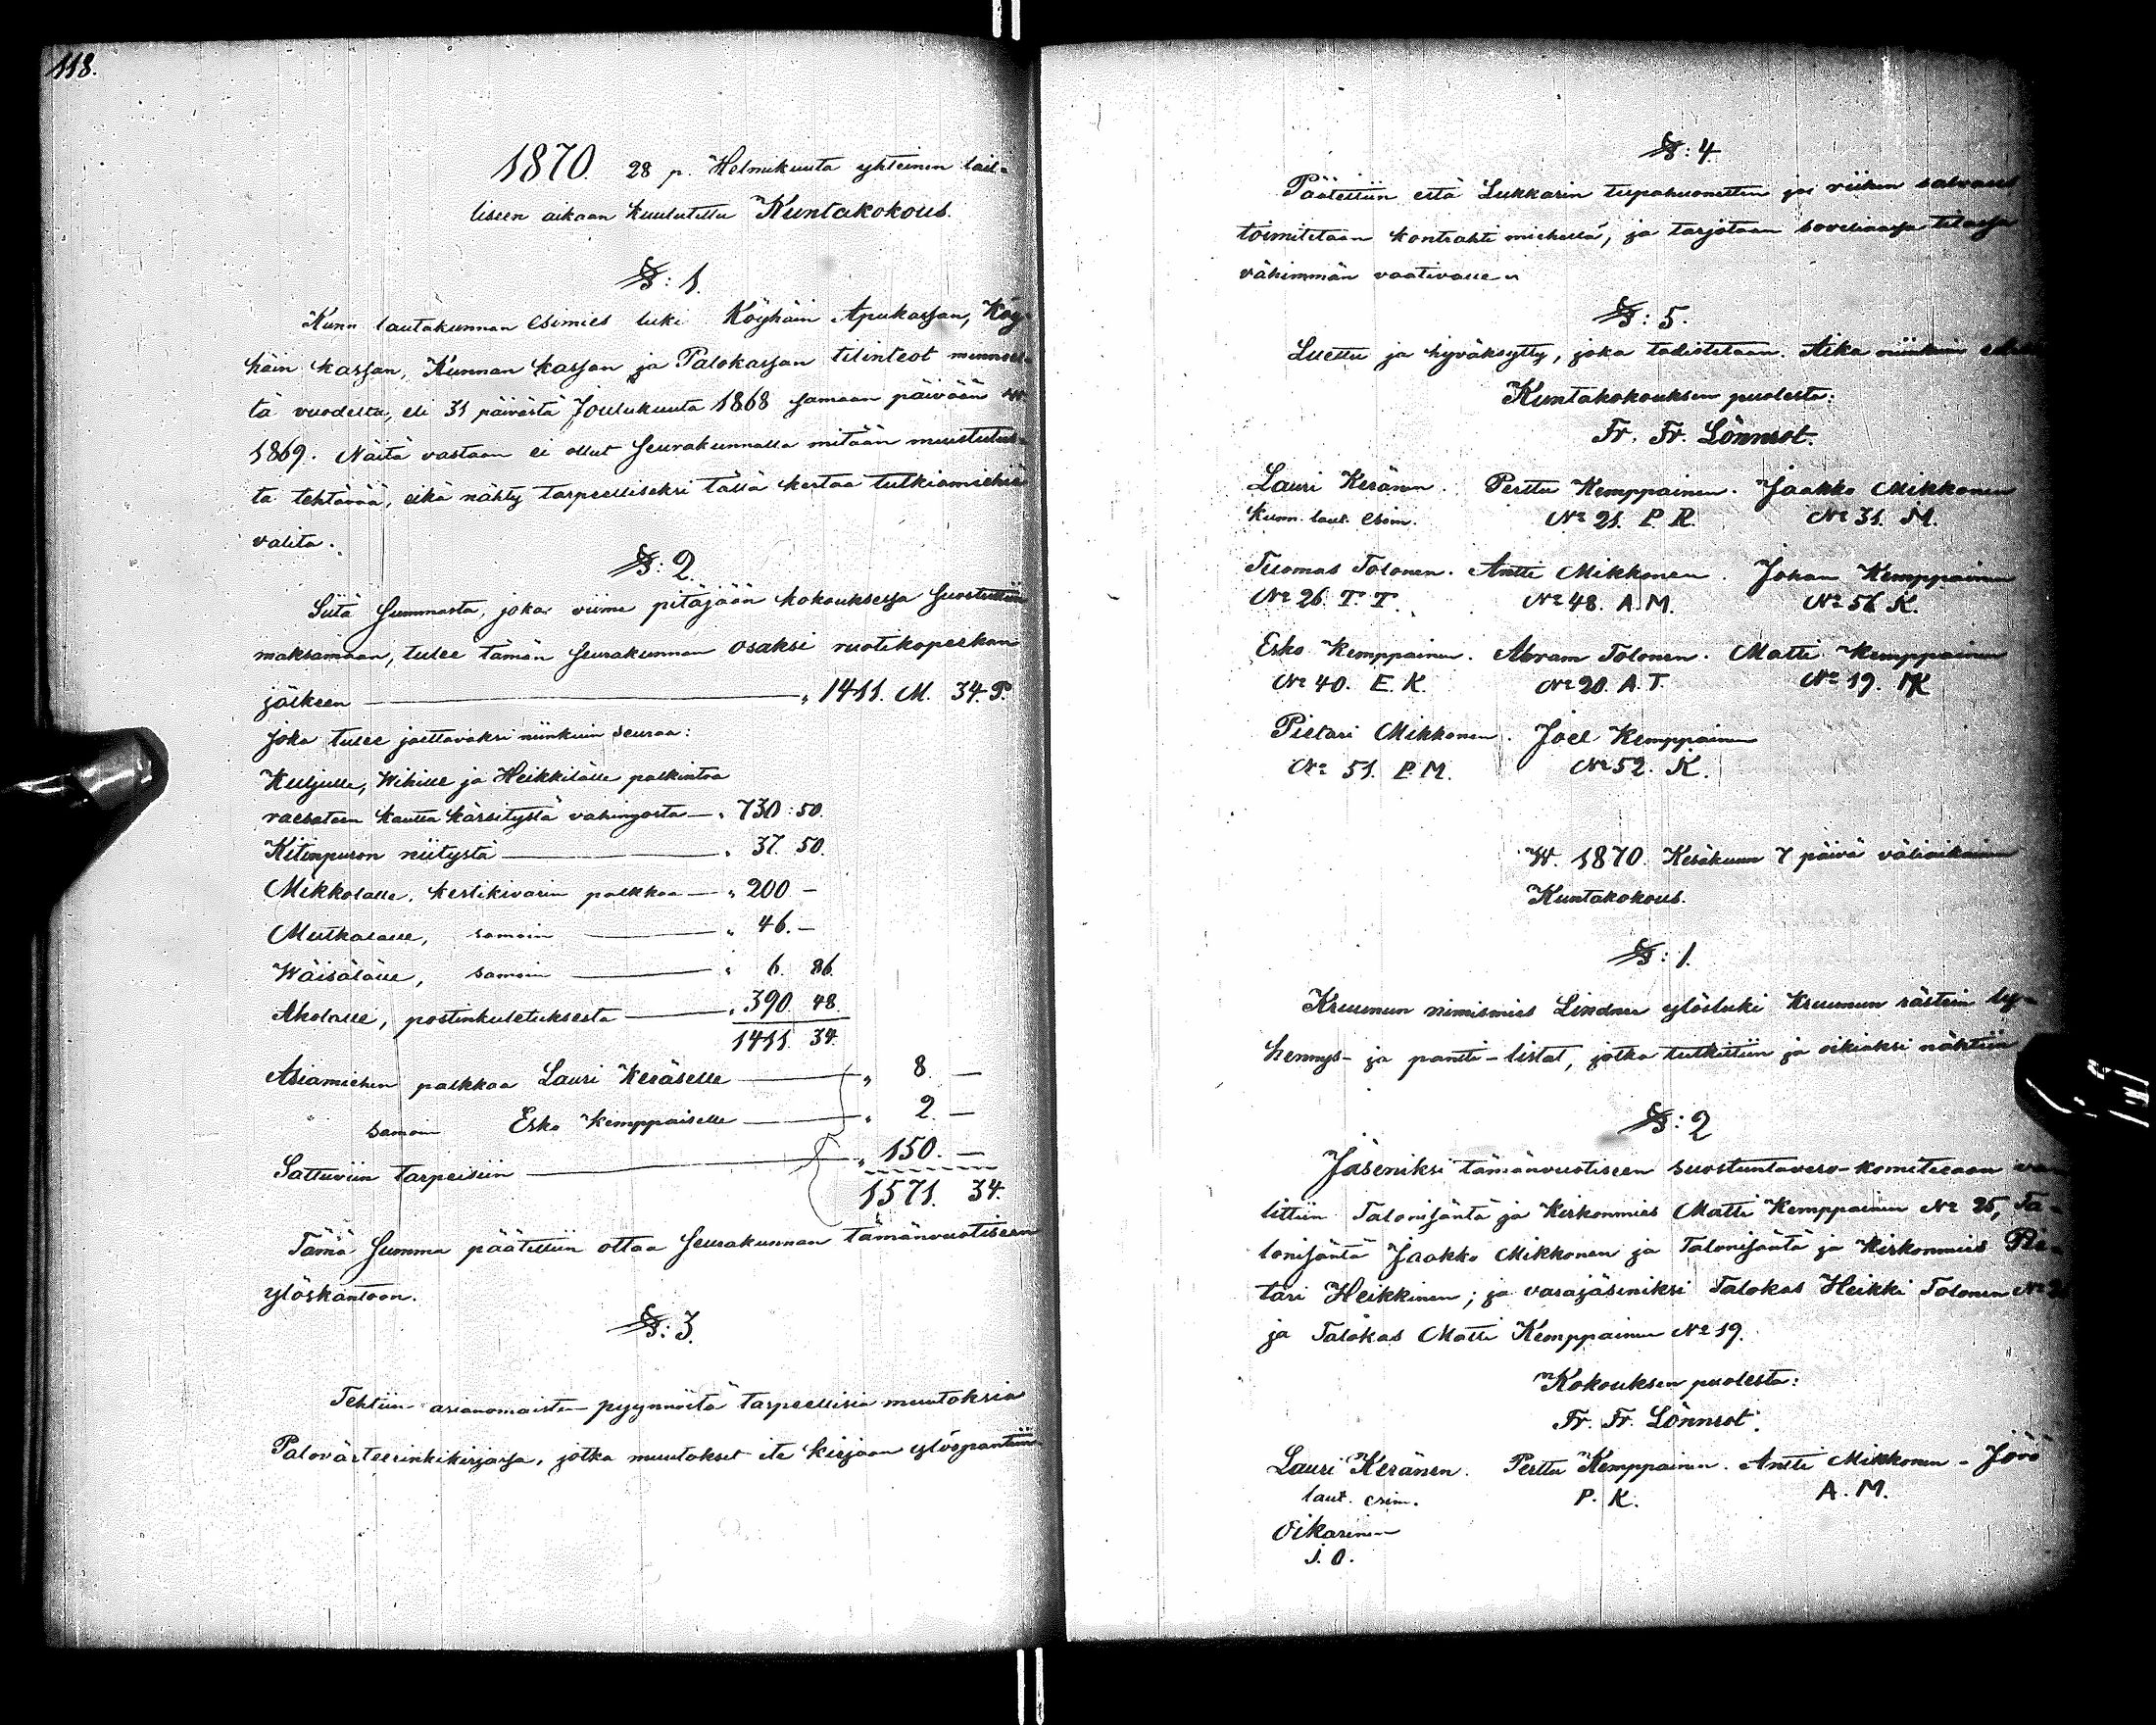 118.
1870. 28 p. Helmikuuta yhteinen lail-
liseen aikaan kuulutettu Kuntakokous.
§: 1.
Kunn lautakunnan Esimies luki Köyhäin Apukassan, Köy-
häin kassan, Kunnan kassan ja Palokassan tilinteot mennees-
tä vuodesta, eli 31 päivästä Joulukuuta 1868 samaan päivään w.
1869. Näitä vastaan ei ollut Seurakunnalla mitään muistutus-
ta tehtävää, eikä nähty tarpeelliseksi tällä kertaa tutkiamiehiä
valita.
§: 2.
Siitä Summasta, joka viime pitäjään kokouksessa suostuttiin
maksamaan, tulee tämän seurakunnan osaksi ruotikopeekan
jälkeen — „ 1411. M. 34. P.
Joka tulee jaettavaksi niinkuin seuraa:
Kuljulle, Wihille ja Heikkilälle palkintoa
raesateen kautta kärsitystä vahingosta — „ 730 : 50.
Kitinpuron niitystä — „ 37. 50.
Mikkolalle, kestikivarin palkkaa — „ 200 –
Mutkalalle, samoin — „ 46. –
Wäisälälle, samoin — „ 6. 86.
Aholalle, postinkuletuksesta — „ 390. 48.
1411. 34.
Asiamiehen palkkaa Lauri Keräselle — „ 8. —
samoin Esko Kemppaiselle — „ 2. —
Sattuviin tarpeisiin — „ 150. —
1571. 34.
Tämä Summa päätettiin ottaa Seurakunnan tämänvuotiseen
ylöskantoon.
§: 3.
Tehtiin asianomaisten pyynnöstä tarpeellisia muutoksia
Palovärteerinkikirjassa, jotka muutokset ite kirjaan ylöspantiin
§: 4.
Päätettiin että Lukkarin tupahuonetten ja riihen salvaus
toimitetaan kontrahti miehellä, ja tarjotaan soveliaassa tilassa
vähimmän vaativalle
§: 5.
Luettu ja hyväksytty, joka todistetaan. Aika niinkuin
Kuntakokouksen puolesta:
Fr. Fr. Lönnrot.
Lauri Keränen. Perttu Kemppainen. Jaakko Mikkonen
Kunn. laut. Esim. No 21. P. K. No 31. M.
Tuomas Tolonen. Antti Mikkonen. Johan Kemppainen
No 26. T. T. No 48. A. M. No 56 K.
Esko Kemppainen. Abram Tolonen. Matti Kemppainen
No 40. E. K. No 20. A. T. No 19. MK
Pietari Mikkonen. Joel Kemppainen
No 51. P. M. No 52. K.
W. 1870. Kesäkuun 7 päivä väliaikainen
Kuntakokous.
§: 1.
Kruunun nimismies Lindner ylösluki Kruunun rästein ly-
hennys- ja pantti-listat, jotka tutkittiin ja oikiaksi nähtiin
§: 2
Jäseniksi tämänvuotiseen suostuntavero-komiteeaan va-
littiin Talonisäntä ja Kirkonmies Matti Kemppainen No 25, Ta-
lonisäntä Jaakko Mikkonen ja Talonisäntä ja Kirkonmies Pie-
tari Heikkinen; ja varajäseniksi Talokas Heikki Tolonen
ja Talokas Matti Kemppainen No 19.
Kokouksen puolesta:
Fr. Fr. Lönnrot.
Lauri Keränen. Perttu Kemppainen. Antti Mikkonen - Jöró
laut. esim. P. K. A. M.
Oikarinen
J. O.